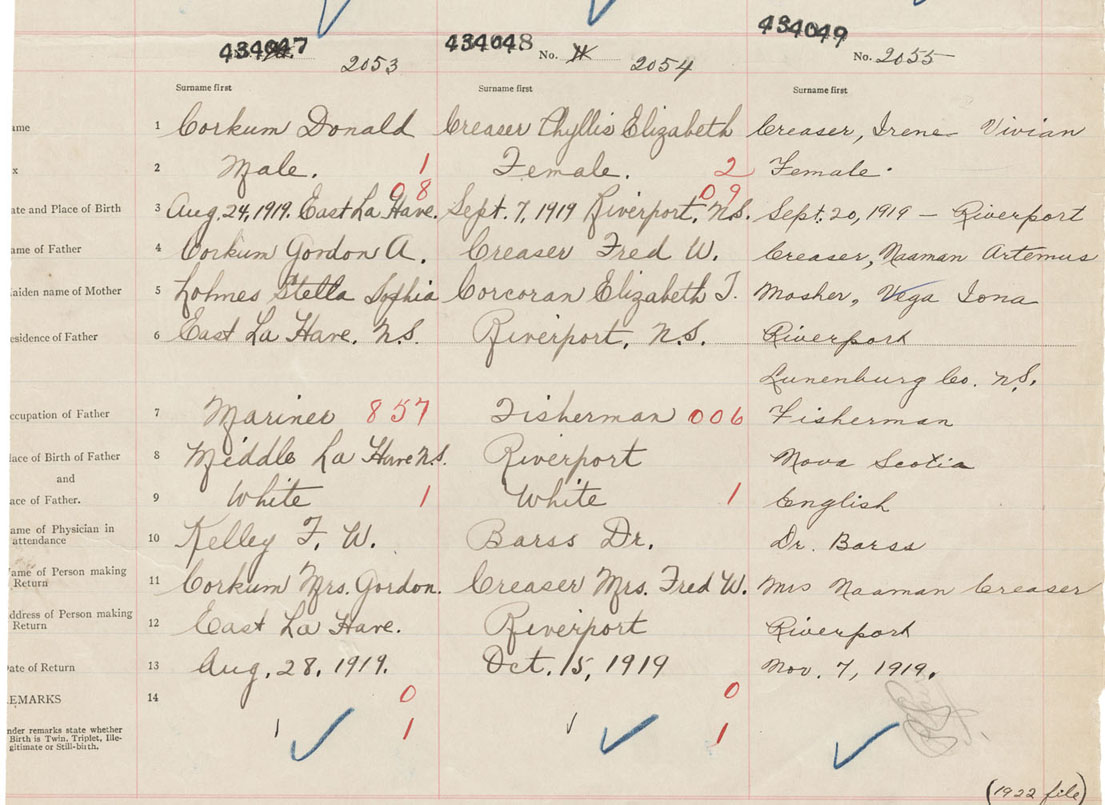 434047 434048 434049
2053 No. 2054 No. 2055
Surname first Surname first Surname first
ame 1 Corkum Donald Creaser Phyllis Elizabeth Creaser, Irene Vivian
x 2 Male. 1 Female. 2 Female.
08 09
ate and Place of Birth 3 Aug. 24, 1919. East La Have. Sept. 7, 1919 Riverport, N.S. Sept. 20, 1919 – Riverport
ame of Father 4 Corkum Gordon A. Creaser Fred W. Creaser, Naaman Artemus
aiden name of Mother 5 Lohnes Stella Sophia Corcoran Elizabeth T. Mosher, Vega Iona
esidence of Father 6 East La Have. N.S. Riverport, N.S. Riverport
Lunenburg Co. N.S.
ccupation of Father 7 Mariner 857 Fisherman 006 Fisherman
lace of Birth of Father 8 Middle La Have N.S. Riverport Nova Scotia
and
ace of Father. 9 White 1 White 1 English
ame of Physician in
attendance 10 Kelley F. W. Barss Dr. Dr. Barss
Name of Person making
Return 11 Corkum Mrs. Gordon. Creaser Mrs. Fred W. Mrs Naaman Creaser
ddress of Person making
Return 12 East La Have. Riverport Riverport
ate of Return 13 Aug. 28, 1919. Oct. 15, 1919 Nov. 7, 1919.
EMARKS 14 0 0
nder remarks state whether
Birth is Twin, Triplet, Ille-
gitimate or Still-birth. 1 1 1 1
(1922 file)